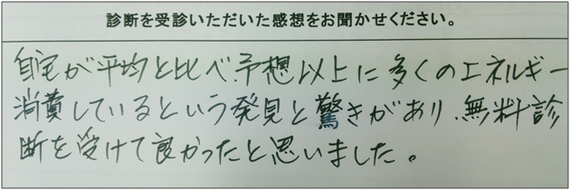 診断を受診いただいた感想をお聞かせください。
自宅が平均と比べ予想以上に多くのエネルギー
消費しているという発見と驚きがあり、無料診
断を受けて良かったと思いました。